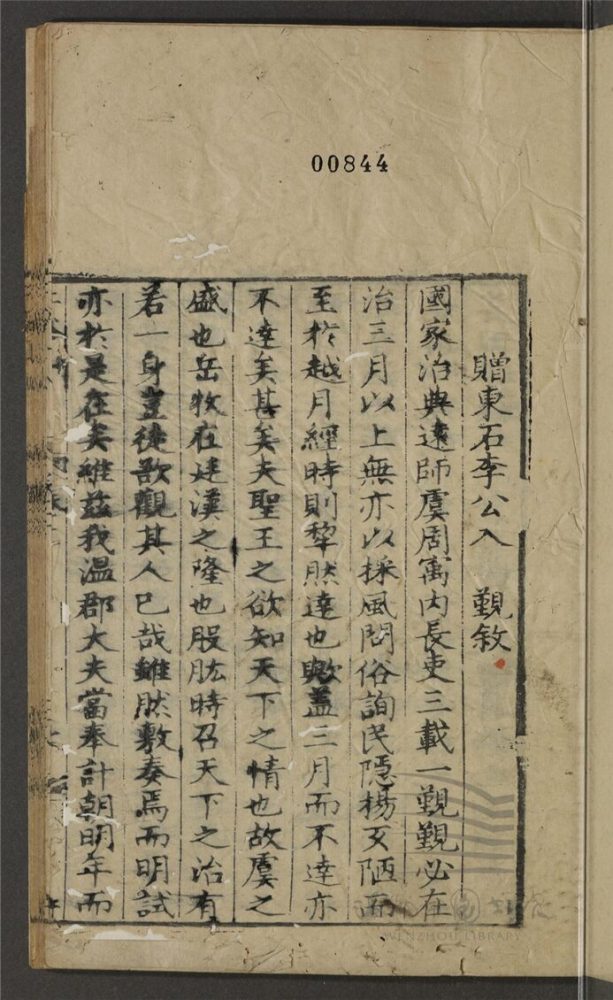 00844
贈東石李公入 覲敘
國家治典遠師虞周寓内長吏三載一覲覲必在
治三月以上無亦以採風問俗詢民隱楊仄陋而
至於越月經時則犂然達也歟蓋三月而不達亦
不達矣甚矣夫聖王之欲知天下之情也故虞之
盛也岳牧在廷漢之隆也股肱時召天下之治有
若一身豈徒歆觀其人已哉雖然敷奏焉而明試
亦於是在矣維茲我溫郡大夫當奉計朝明年而
WENZHOU LIBRARY